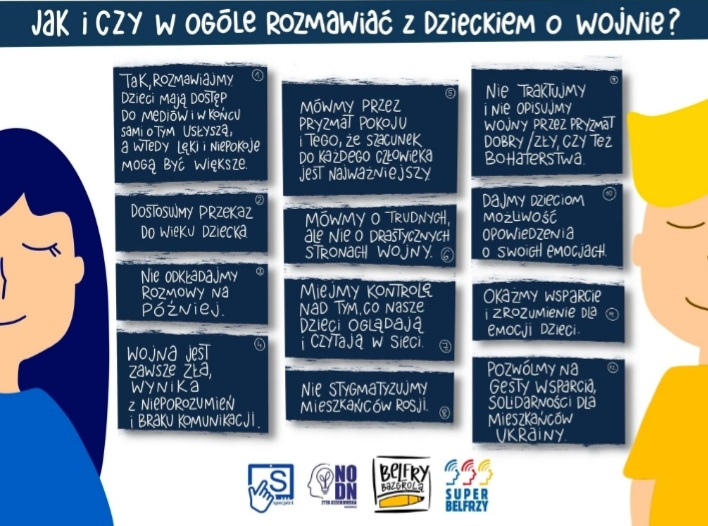 JAK i CZY W OGÓLE ROZMAWIAĆ Z DZIECKIEM O WOJNIE?
1
TAK, ROZMAWIAJMY.
DZIECI MAJĄ DOSTĘP
DO MEDIÓW i W KOŃCU
SAMI O TYM USŁYSZĄ,
A WTEDY LĘKI i NIEPOKOJE
MOGĄ BYĆ WIĘKSZE.
2
DOSTOSUJMY PRZEKAZ
DO WIEKU DZIECKA
3
NIE ODKŁADAJMY
ROZMOWY NA
PÓŹNIEJ.
4
WOJNA JEST
ZAWSZE ZŁA,
WYNIKA
Z NIEPOROZUMIEŃ
i BRAKU KOMUNIKACJI.
5
MÓWMY PRZEZ
PRYZMAT POKOJU
i TEGO, ŻE SZACUNEK
DO KAŻDEGO CZŁOWIEKA
JEST NAJWAŻNIEJSZY
MÓWMY O TRUDNYCH,
ALE NIE O DRASTYCZNYCH
STRONACH WOJNY. 6
MIEJMY KONTROLĘ
NAD TYM, CO NASZE
DZIECI OGLĄDAJĄ
i CZYTAJĄ W SIECI. 7
NIE STYGMATYZUJMY
MIESZKAŃCÓW ROSJI. 8
9
NIE TRAKTUJMY
i NIE OPISUJMY
WOJNY PRZEZ PRYZMAT
DOBRY/ZŁY, CZY TEŻ
BOHATERSTWA.
10
DAJMY DZIECIOM
MOŻLIWOŚĆ
OPOWIEDZENIA
O SWOICH EMOCJACH.
OKAŻMY WSPARCIE
i ZROZUMIENIE DLA 11
EMOCJI DZIECI.
12
POZWÓLMY NA
GESTY WSPARCIA,
SOLIDARNOŚCI DLA
MIESZKAŃCÓW
UKRAINY.
S
specjalni
NO
DN
BELFRY
BAZGROLĄ
SUPER
BELFRZY